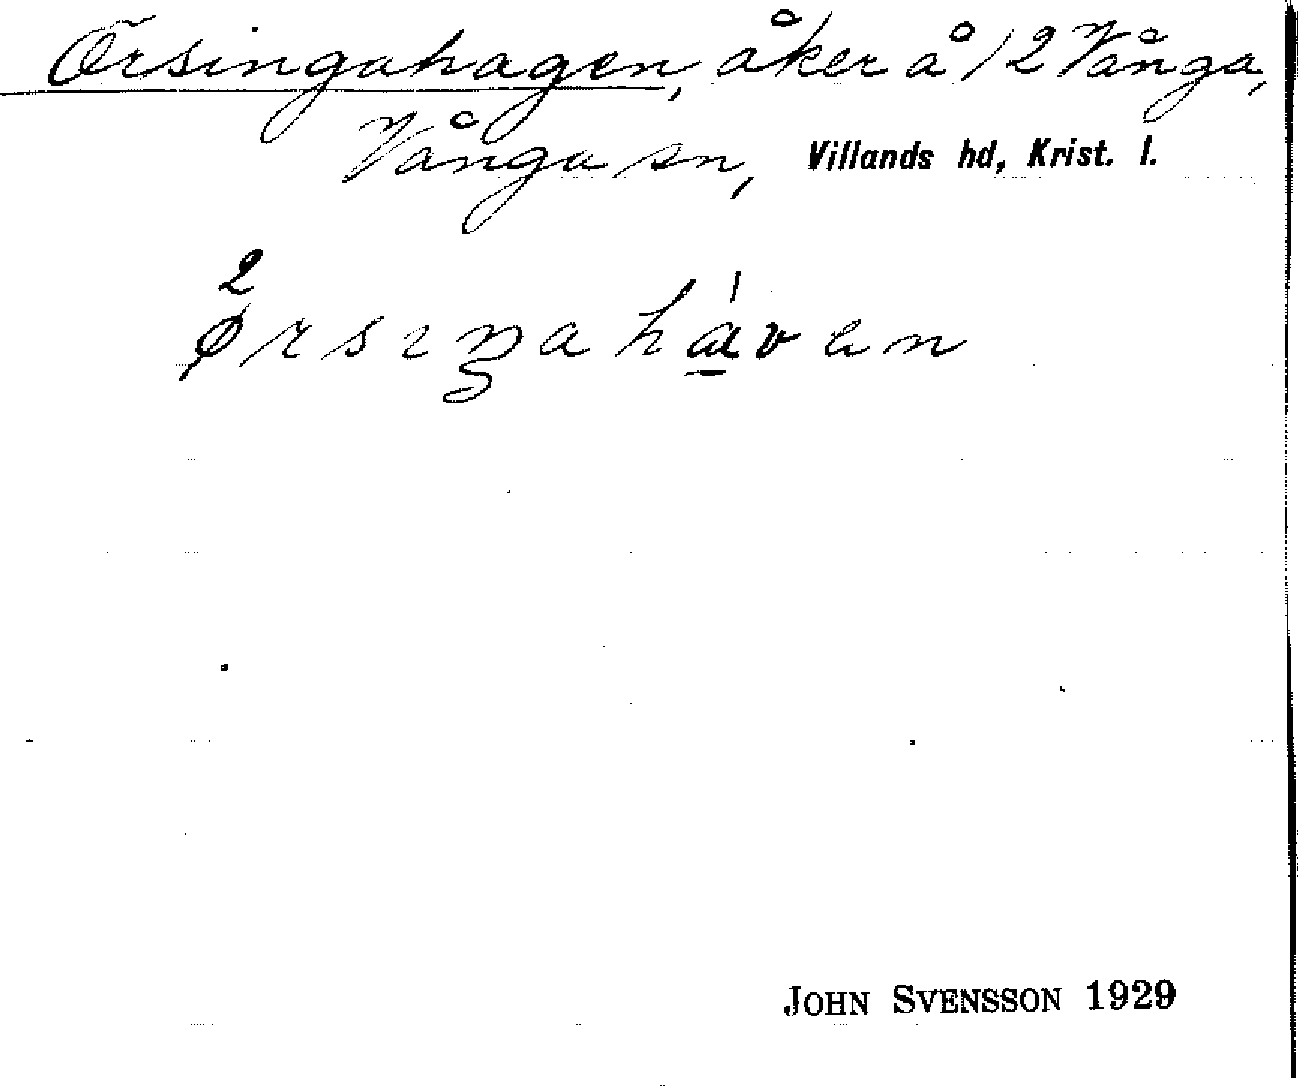 Örsingahagen, åker å 12 Vånga,
Vånga sn, Villands hd, Krist. l.
2
ørsiŋahávan
JOHN SVENSSON 1929